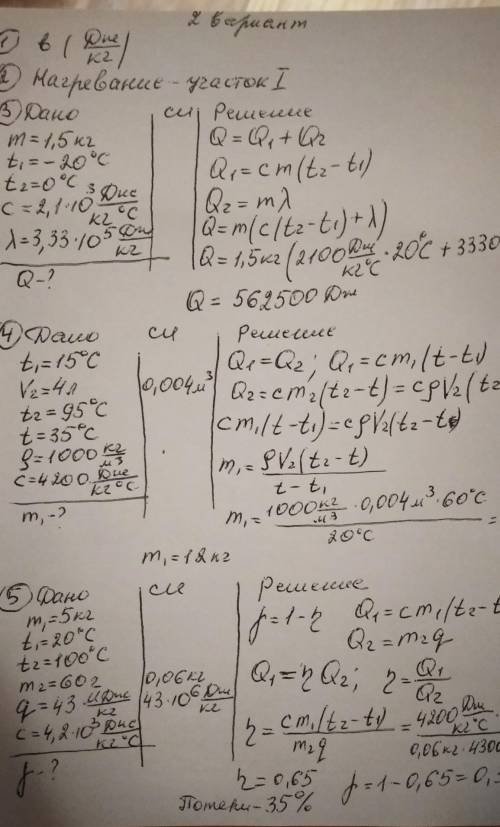 2 вариант
① в (Дж/кг)
② Нагревание - участок I
③ Дано | СИ | Решение
m = 1,5 кг
t₁ = -20°C
t₂ = 0°C
c = 2,1·10³ Дж/кг°C
λ = 3,33·10⁵ Дж/кг
Q - ?
Q = Q₁ + Q₂
Q₁ = cm(t₂ - t₁)
Q₂ = mλ
Q = m(c(t₂ - t₁) + λ)
Q = 1,5кг (2100 Дж/кг°C · 20°C + 3330
Q = 562500 Дж
④ Дано | СИ | Решение
t₁ = 15°C
V₂ = 4л | 0,004м³
t₂ = 95°C
t = 35°C
ρ = 1000 кг/м³
c = 4200 Дж/кг°C
m₁ - ?
Q₁ = Q₂; Q₁ = cm₁(t - t₁)
Q₂ = cm₂(t₂ - t) = cρV₂(t₂
cm₁(t - t₁) = cρV₂(t₂ - t
m₁ = ρV₂(t₂ - t)/t - t₁
m₁ = 1000 кг/м³ · 0,004м³ · 60°C/20°C =
m₁ = 12 кг
⑤ Дано | СИ | Решение
m₁ = 5кг
t₁ = 20°C
t₂ = 100°C
m₂ = 60г | 0,06кг
q = 43 МДж/кг | 43·10⁶ Дж/кг
c = 4,2·10³ Дж/кг°C
f - ?
f = 1 - η Q₁ = cm₁(t₂ - t
Q₂ = m₂q
Q₁ = η Q₂; η = Q₁/Q₂
η = cm₁(t₂ - t₁)/m₂q = 4200 Дж/кг°C ·/0,06кг · 4300
η = 0,65 f = 1 - 0,65 = 0,
Потери - 35%